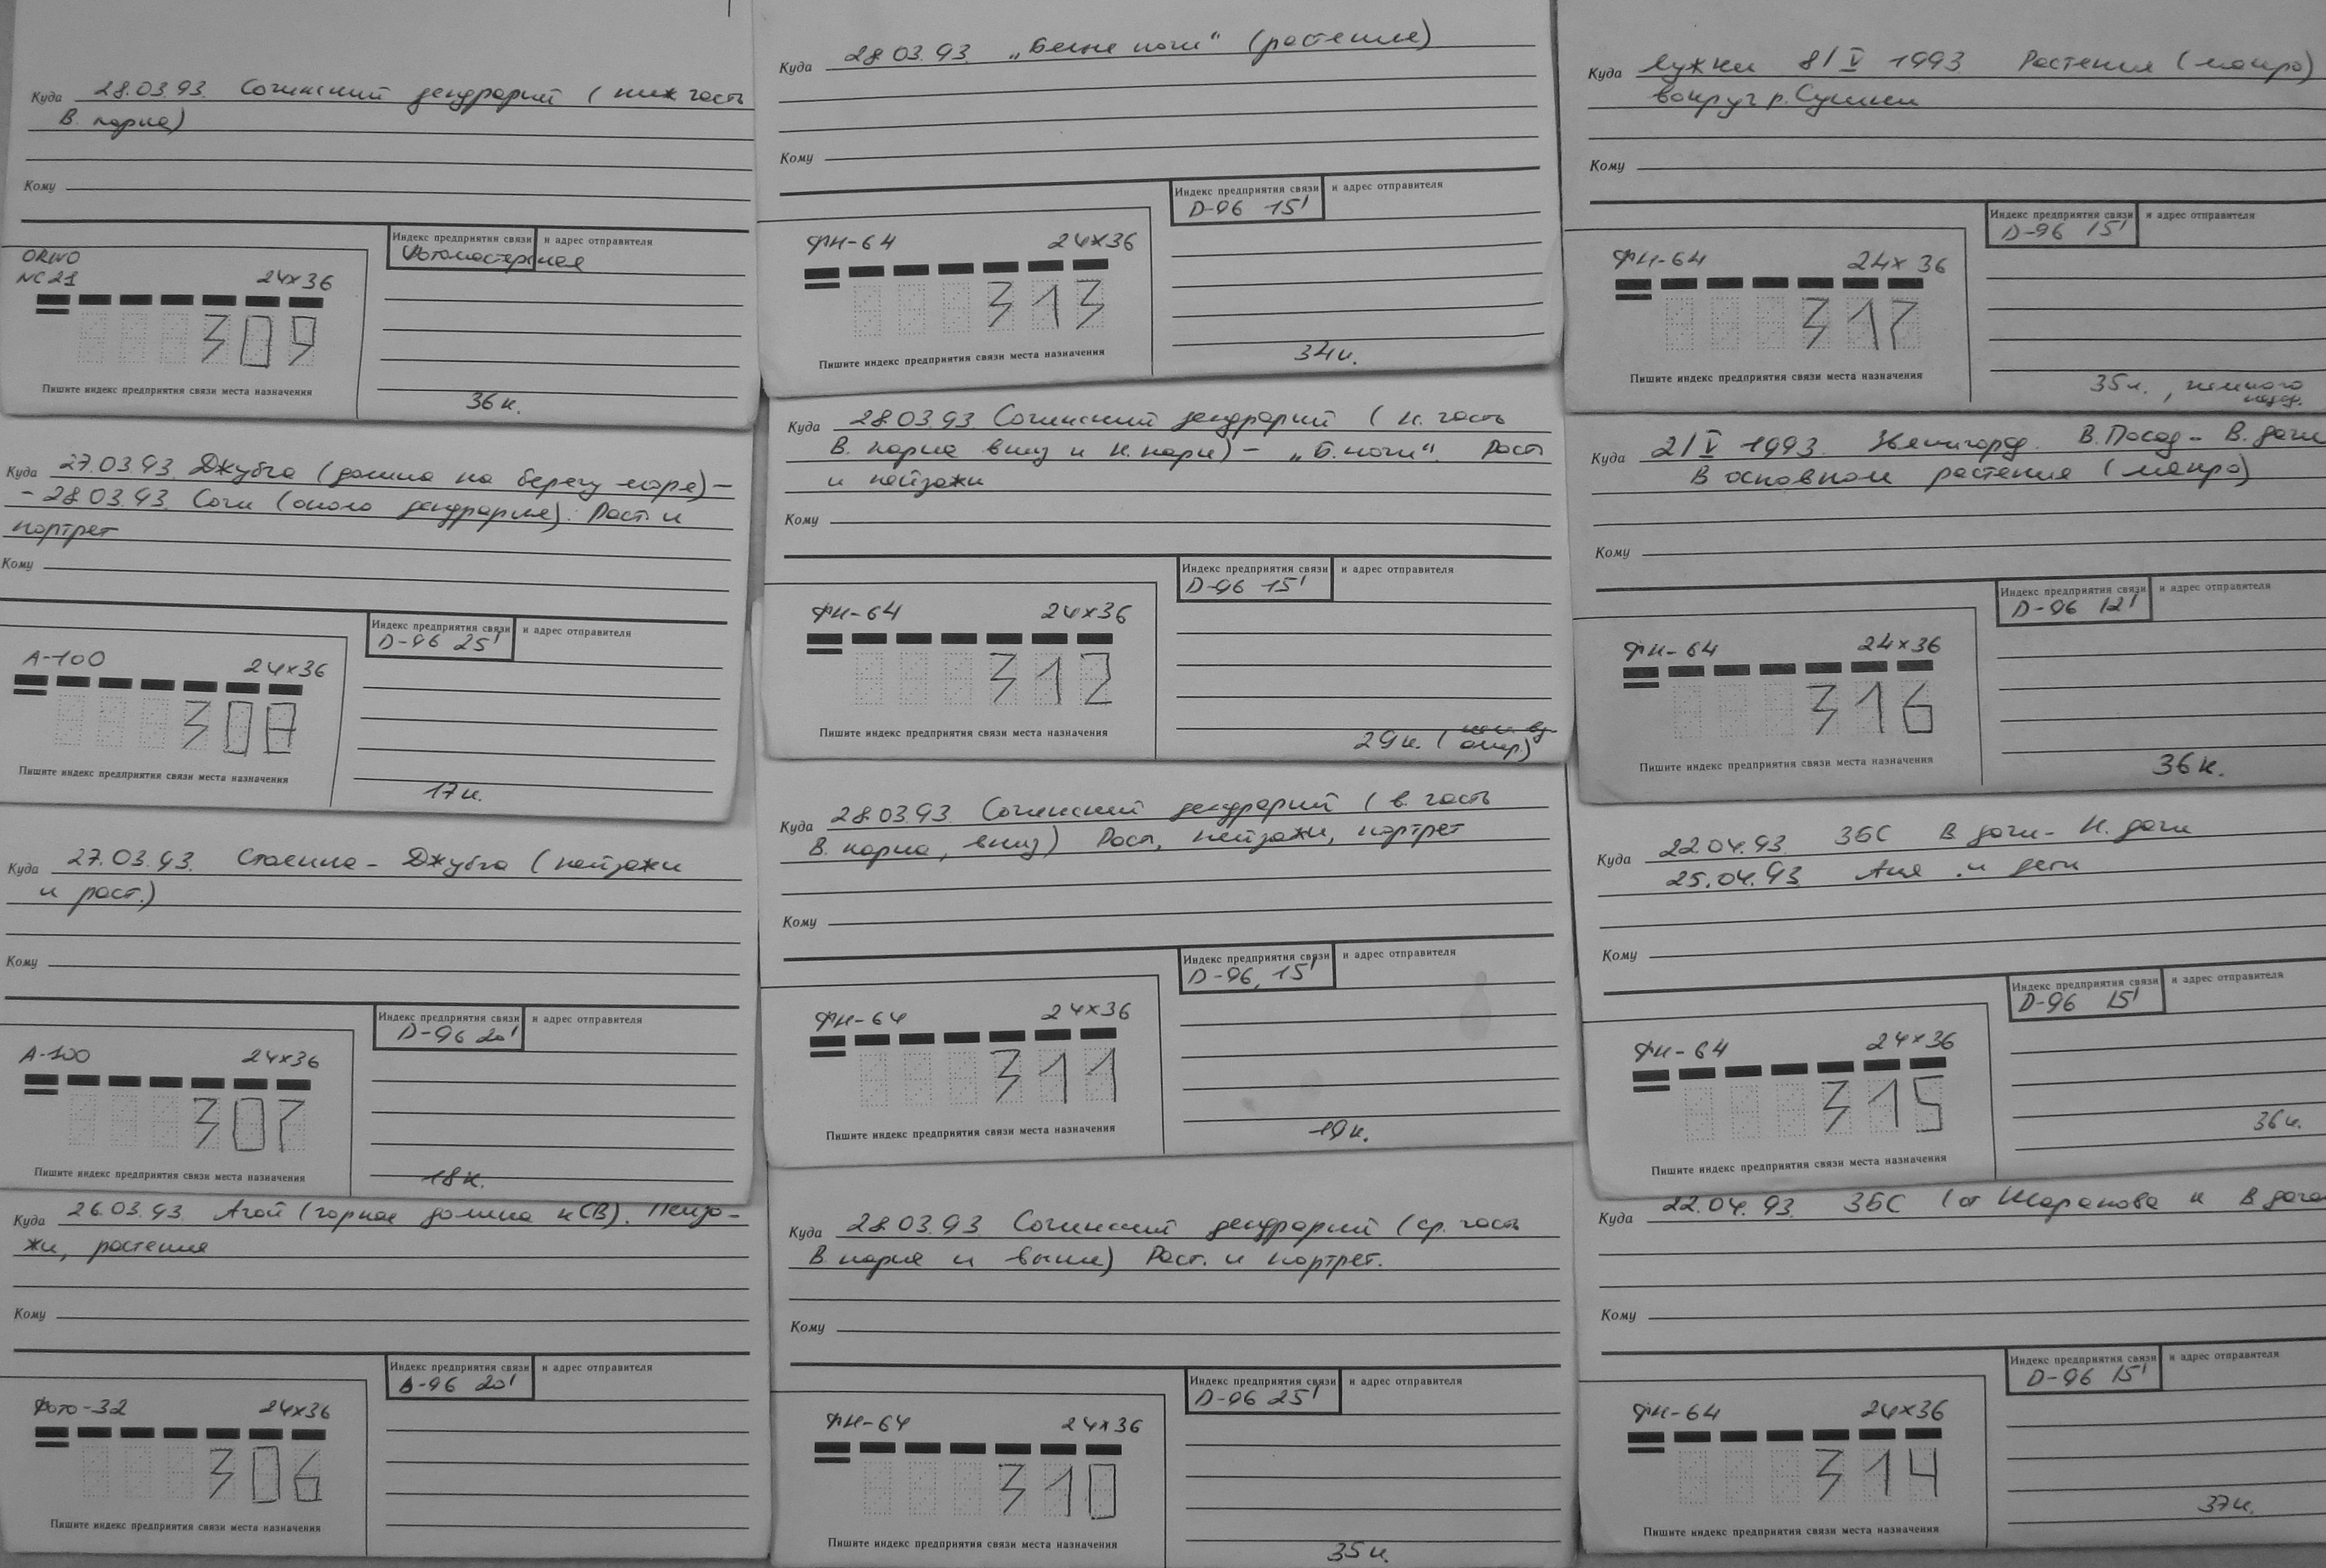 Куда 28.03.93. Сочинский дендрарий (ниж часть
В. парка)
Кому
Индекс предприятия связи и адрес отправителя
Фотомастерская
ORWO
NC 21 24×36
309
Пишите индекс предприятия связи места назначения
36 к.
Куда 27.03.93. Джубга (долина на берегу моря) –
– 28.03.93. Сочи (около дендрария). Раст. и
портрет
Кому
Индекс предприятия связи и адрес отправителя
D-96 25'
А-100 24×36
308
Пишите индекс предприятия связи места назначения
17 к.
Куда 27.03.93. – Джубга (пейзажи
и раст.)
Кому
Индекс предприятия связи и адрес отправителя
D-96 20'
А-100 24×36
307
Пишите индекс предприятия связи места назначения
18 к.
Куда 26.03.93. Агой (горная долина к СВ). Пейза-
жи, растения
Кому
Индекс предприятия связи и адрес отправителя
D-96 20'
Фото-32 24×36
306
Пишите индекс предприятия связи места назначения
Куда 28.03.93. „Белые ночи“ (растения)
Кому
Индекс предприятия связи и адрес отправителя
D-96 15'
ФН-64 24×36
313
Пишите индекс предприятия связи места назначения
34 к.
Куда 28.03.93. Сочинский дендрарий (н. часть
В. парка вниз и Н. парк) – „Б. ночи“. Раст
и пейзажи
Кому
Индекс предприятия связи и адрес отправителя
D-96 15'
ФН-64 24×36
312
Пишите индекс предприятия связи места назначения
29 к. (
Куда 28.03.93. Сочинский дендрарий (в. часть
В. парка, вниз) Раст, пейзажи, портрет
Кому
Индекс предприятия связи и адрес отправителя
D-96, 15'
ФН-64 24×36
311
Пишите индекс предприятия связи места назначения
19 к.
Куда 28.03.93 Сочинский дендрарий (ср. часть
В парка и выше) Раст. и портрет.
Кому
Индекс предприятия связи и адрес отправителя
D-96 25'
ФН-64 24×36
310
Пишите индекс предприятия связи места назначения
35 к.
Куда Лужки 8/V 1993 Растения (макро)
вокруг р. Сушки
Кому
Индекс предприятия связи и адрес отправителя
D-96 15'
ФН-64 24×36
317
Пишите индекс предприятия связи места назначения
35 к., немного
Куда 2/V 1993. Звенигород. В. Посад – В. дачи
В основном растения (макро)
Кому
Индекс предприятия связи и адрес отправителя
D-96 12'
ФН-64 24×36
316
Пишите индекс предприятия связи места назначения
36 к.
Куда 22.04.93. ЗБС В дачи – Н. дачи
25.04.93 Аня и дети
Кому
Индекс предприятия связи и адрес отправителя
D-96 15'
ФН-64 24×36
315
Пишите индекс предприятия связи места назначения
36 к.
Куда 22.04.93. ЗБС (от Шарапова к В дача
Кому
Индекс предприятия связи и адрес отправителя
D-96 15'
ФН-64 24×36
314
Пишите индекс предприятия связи места назначения
37 к.